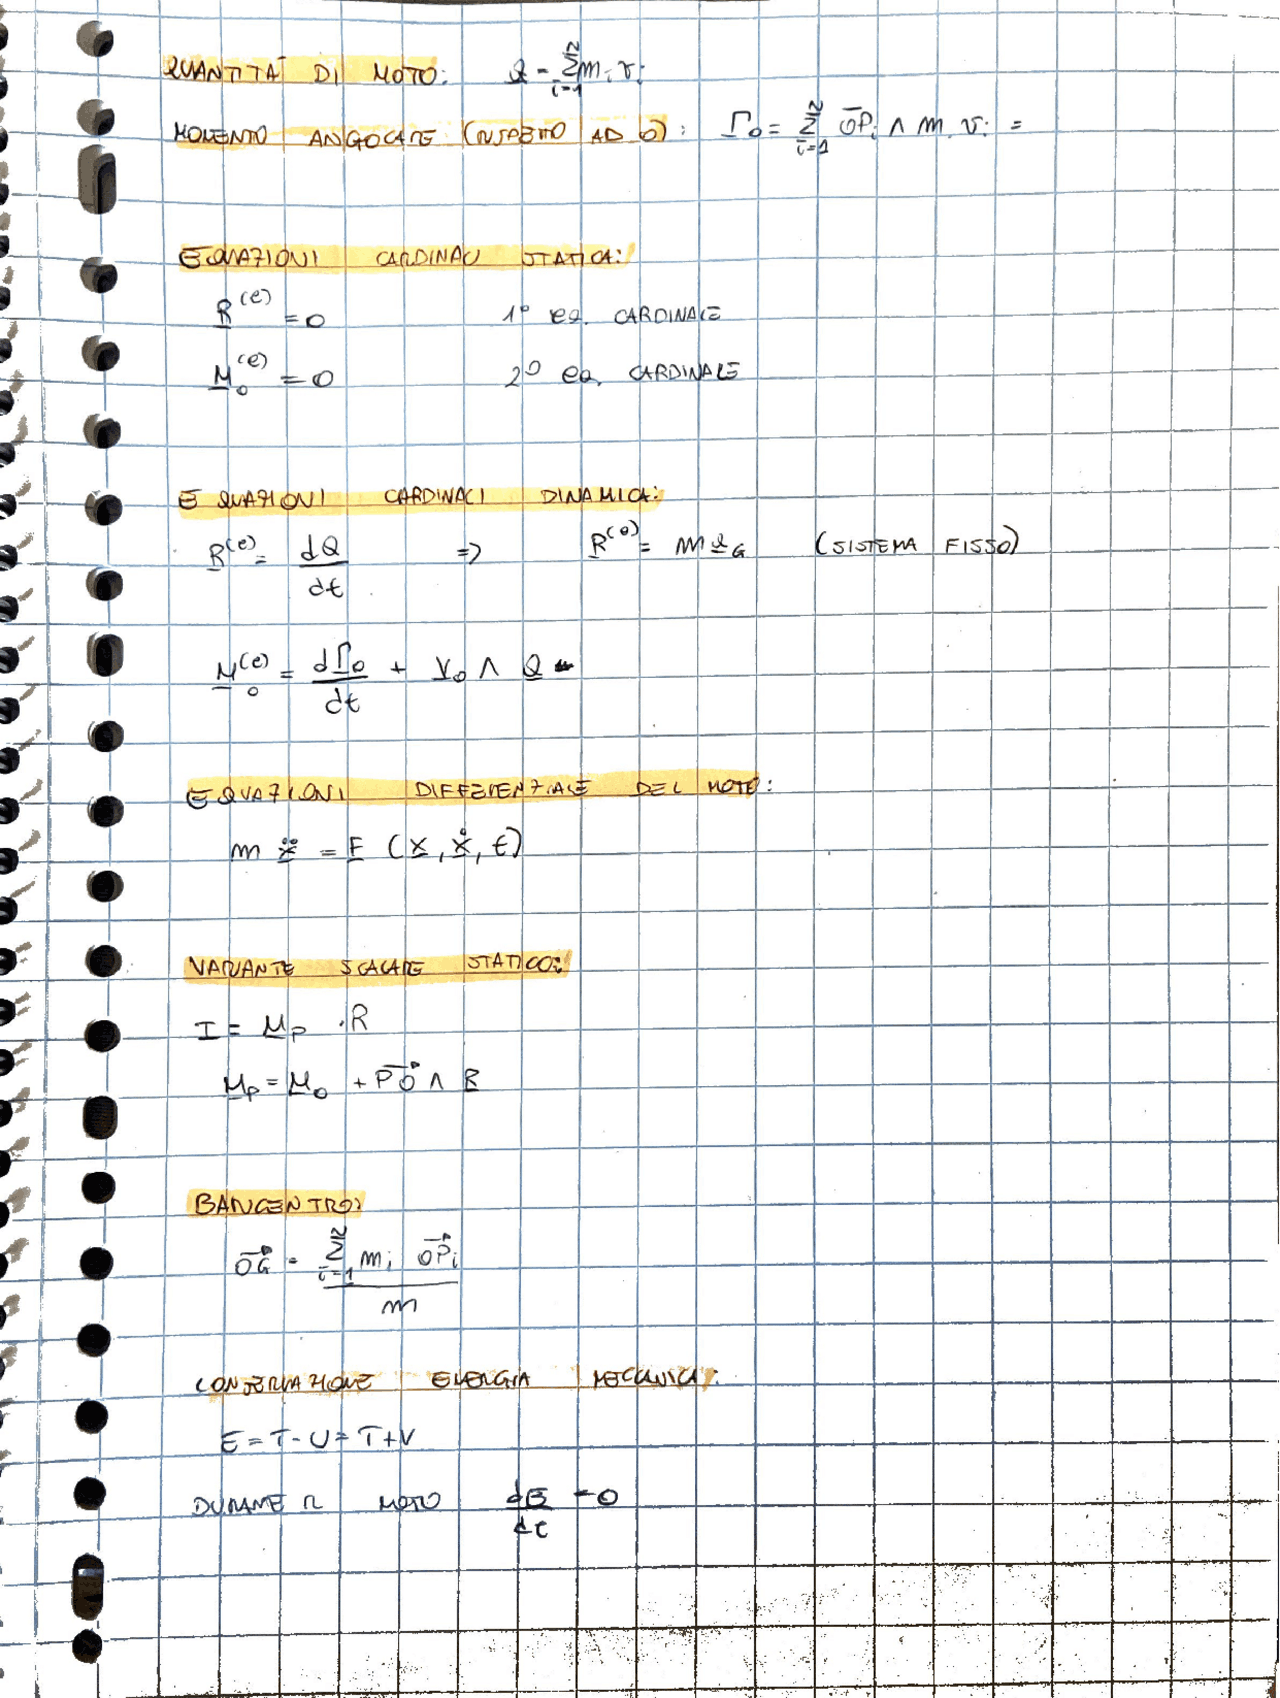 QUANTITÀ DI MOTO: Q = Σ_{i=1}^{N} m_i v_i
MOMENTO ANGOLARE (RISPETTO AD O): Γ_o = Σ_{i=1}^{N} OP_i ∧ m_i v_i =
EQUAZIONI CARDINALI STATICA:
R^(e) = 0 1° EQ. CARDINALE
M_o^(e) = 0 2° EQ. CARDINALE
EQUAZIONI CARDINALI DINAMICA:
R^(e) = dQ/dt => R^(e) = m a_G (SISTEMA FISSO)
M_o^(e) = dΓ_o/dt + v_o ∧ Q
EQUAZIONI DIFFERENZIALE DEL MOTO:
m ẍ = F (x, ẋ, t)
VARIANTE SCALARE STATICO:
I = M_P · R
M_P = M_o + PO ∧ R
BARICENTRO:
OG = Σ_{i=1}^{N} m_i OP_i / m
CONSERVAZIONE ENERGIA MECCANICA:
E = T - U = T + V
DURANTE IL MOTO dE/dt = 0